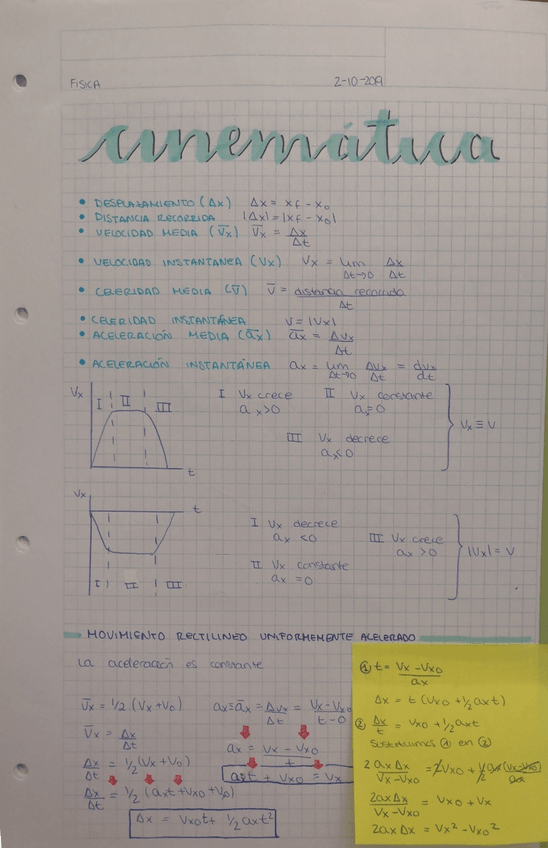 FISICA 2-10-2019
cinemática
• DESPLAZAMIENTO (Δx) Δx = xf - x₀
• DISTANCIA RECORRIDA |Δx| = |xf - x₀|
• VELOCIDAD MEDIA (V̅x) V̅x = Δx/Δt
• VELOCIDAD INSTANTANEA (Vx) Vx = lim Δt→0 Δx/Δt
• CELERIDAD MEDIA (V̅) V̅ = distancia recorrida/Δt
• CELERIDAD INSTANTÁNEA V = |Vx|
• ACELERACIÓN MEDIA (a̅x) a̅x = ΔVx/Δt
• ACELERACIÓN INSTANTÁNEA ax = lim Δt→0 ΔVx/Δt = dVx/dt
Vx I II III t
I Vx crece
ax>0
II Vx constante
ax=0
III Vx decrece
ax<0
Vx ≡ V
Vx t I II III
I Vx decrece
ax <0
II Vx constante
ax =0
III Vx crece
ax >0
|Vx| = V
MOVIMIENTO RECTILINEO UNIFORMEMENTE ACELERADO
La aceleración es constante
V̅x = 1/2 (Vx + V₀)
V̅x = Δx/Δt
Δx/Δt = 1/2 (Vx + V₀)
Δx/Δt = 1/2 (axt + Vx₀ + V₀)
Δx = Vx₀t + 1/2 axt²
ax ≡ a̅x = ΔVx/Δt = Vx - Vx₀/t - 0
ax = Vx - Vx₀/t
axt + Vx₀ = Vx
① t = Vx - Vx₀/ax
Δx = t (Vx₀ + 1/2 axt)
② Δx/t = Vx₀ + 1/2 axt
Sustituimos ① en ②
2 axΔx/Vx - Vx₀ = 2Vx₀ + 1/2 ax(Vx-Vx₀)/ax
2axΔx/Vx - Vx₀ = Vx₀ + Vx
2axΔx = Vx² - Vx₀²